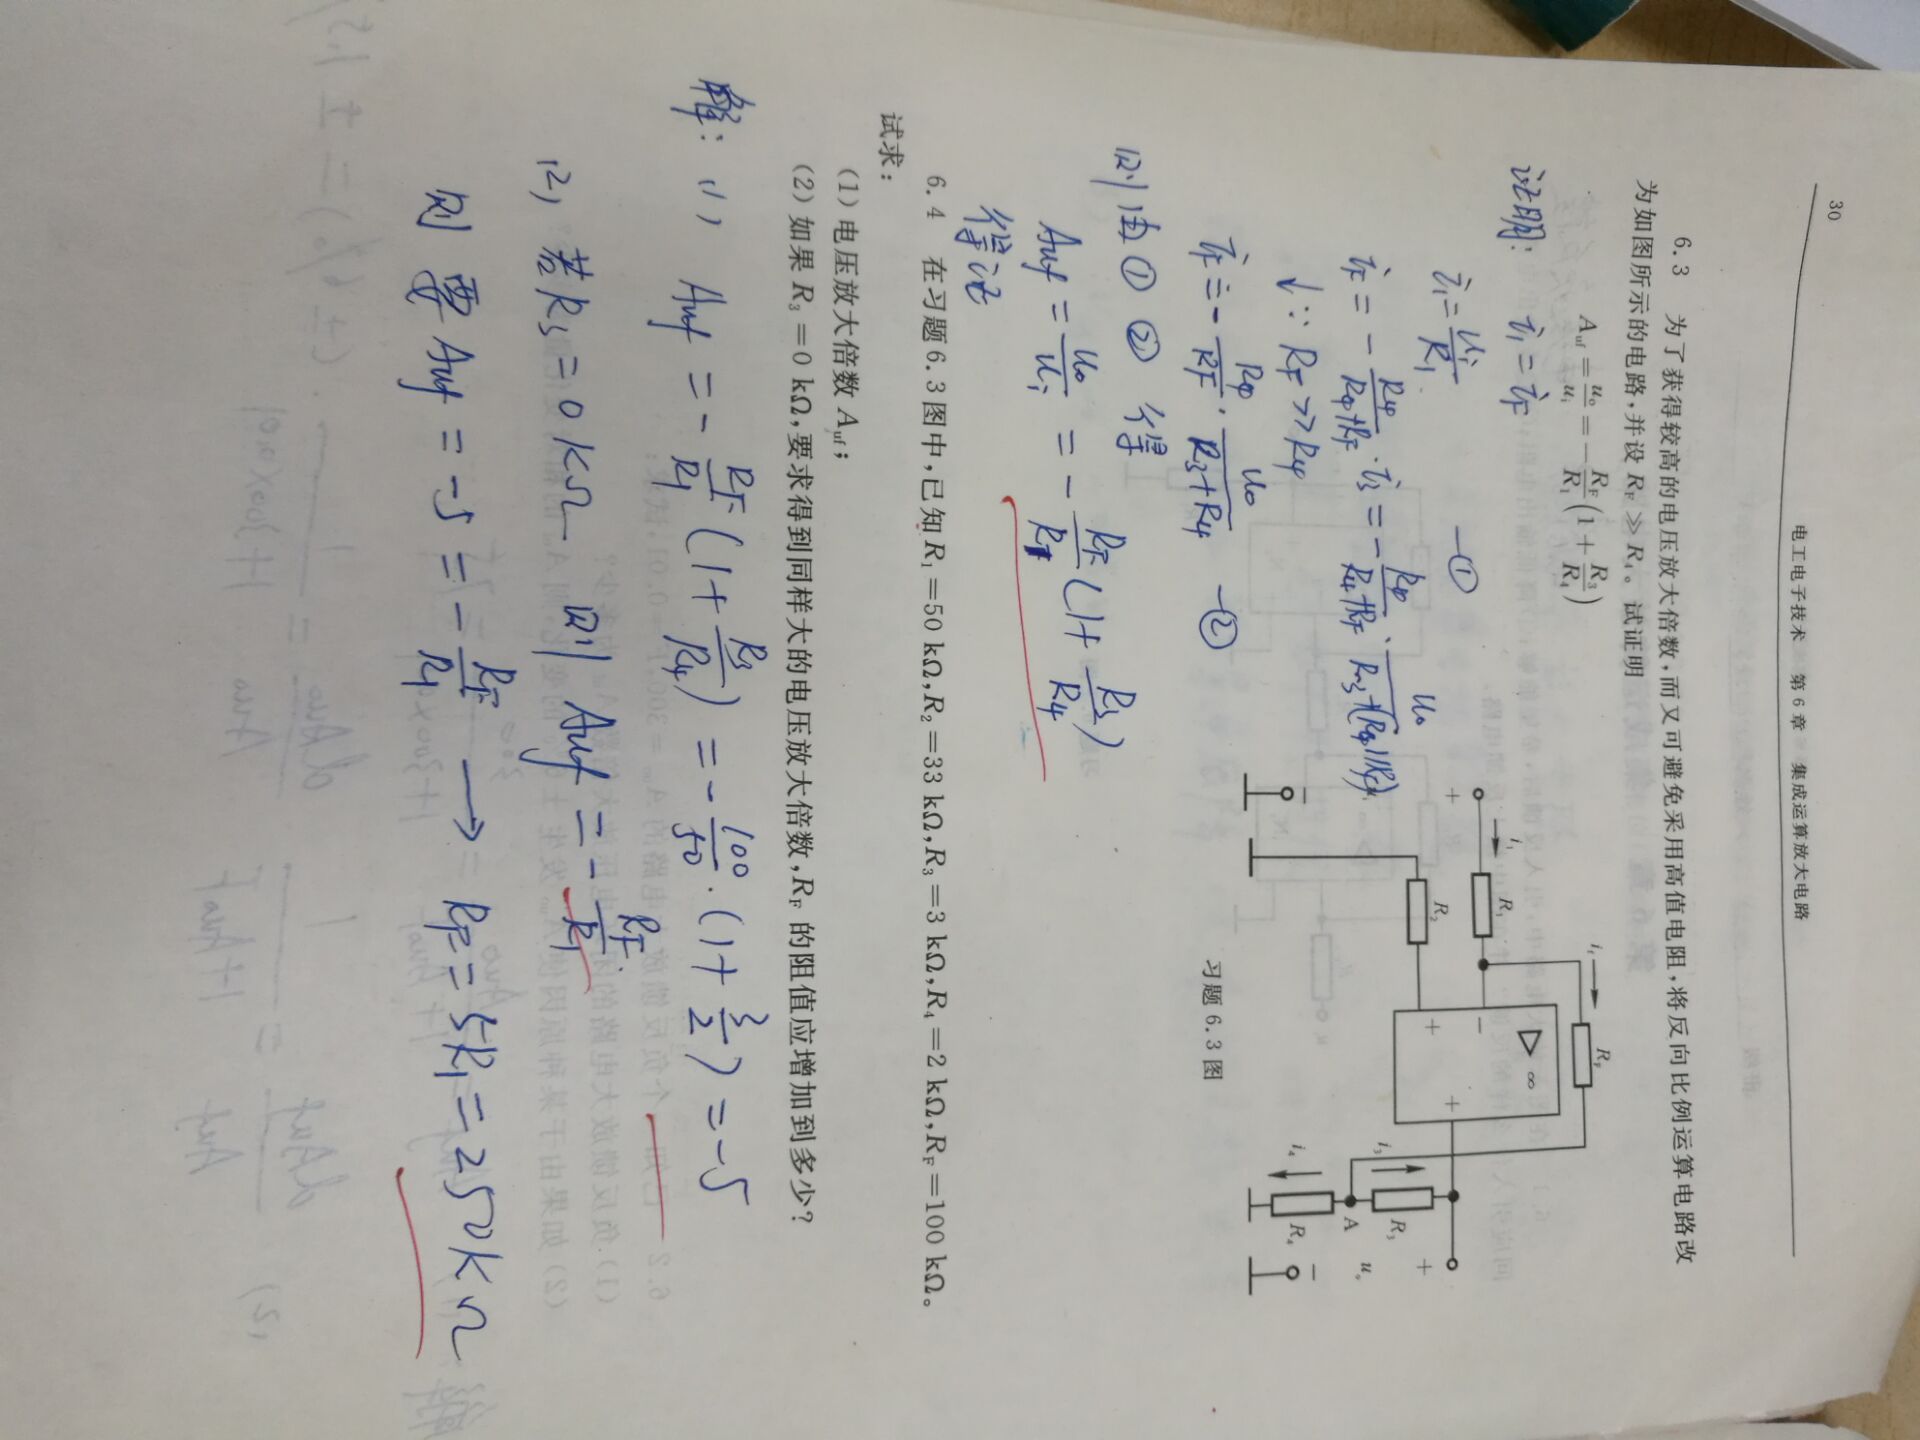 30
电工电子技术 第6章 集成运算放大电路
6.3 为了获得较高的电压放大倍数,而又可避免采用高值电阻,将反向比例运算电路改
为如图所示的电路,并设 R_F ≫ R_4。试证明
A_uf = u_o/u_i = -R_F/R_1 (1 + R_3/R_4)
证明: i_1 = i_F
i_1 = u_i/R_1 —①
i_F = -R_4/(R_4+R_F) · i_3 = -R_4/(R_4+R_F) · u_o/(R_3+(R_4//R_F))
↓ ∵ R_F >> R_4
i_F = -R_4/R_F · u_o/(R_3+R_4) —②
则由①②得
A_uf = u_o/u_i = -R_F/R_1 (1+R_3/R_4)
得证
+ − i_1 R_1 R_2 i_f R_F − + ▷ ∞ + i_3 R_3 A i_4 R_4 + u_o −
习题 6.3 图
6.4 在习题 6.3 图中,已知 R_1=50 kΩ,R_2=33 kΩ,R_3=3 kΩ,R_4=2 kΩ,R_F=100 kΩ。
试求:
(1) 电压放大倍数 A_uf;
(2) 如果 R_3=0 kΩ,要求得到同样大的电压放大倍数,R_F 的阻值应增加到多少?
解: (1) A_uf = -R_F/R_1 (1+R_3/R_4) = -100/50 · (1+3/2) = -5
(2) 若 R_3=0 kΩ 则 A_uf = -R_F/R_1
则要 A_uf = -5 = -R_F/R_1 → R_F = 5R_1 = 250 kΩ